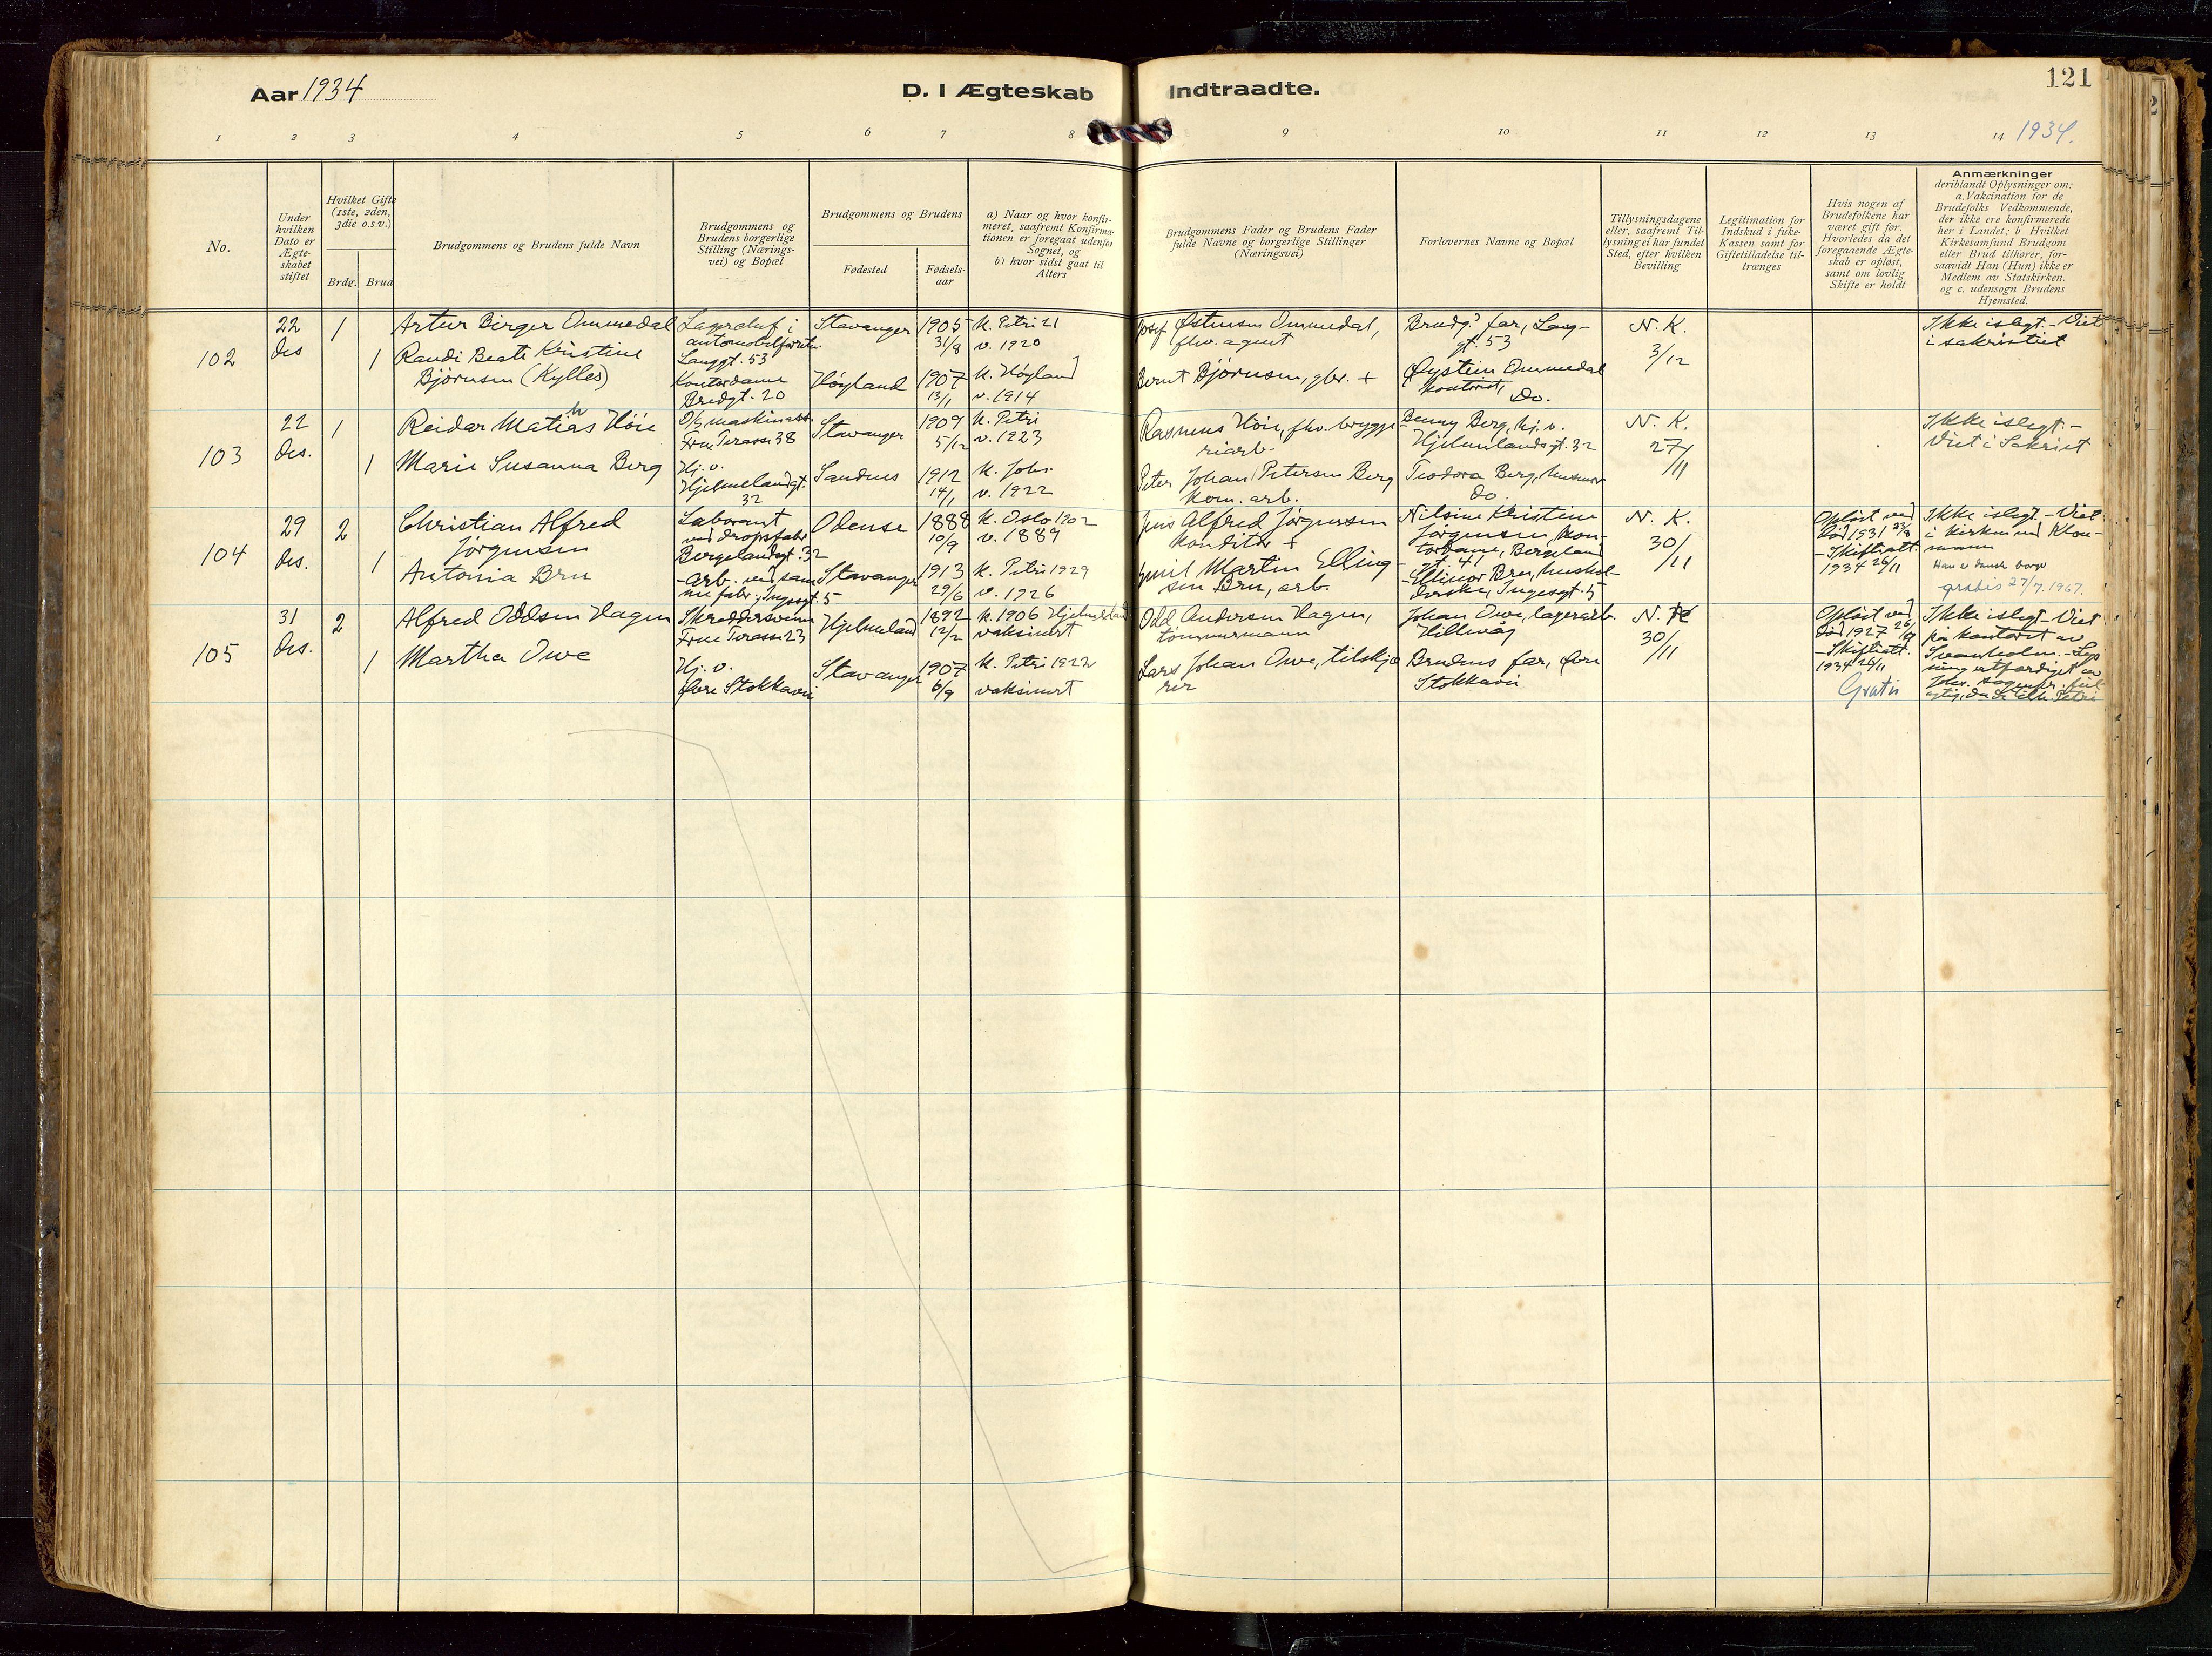 Aar 1934
D. I Ægteskab Indtraadte.
121
1 2 3 4 5 6 7 8 9 10 11 12 13 14 1934.
No.
Under
hvilken
Dato er
Ægte-
skabet
stiftet
Hvilket Gifte
(1ste, 2den,
3die o.s.v.)
Brdg. Brud
Brudgommens og Brudens fulde Navn
Brudgommens og
Brudens borgerlige
Stilling (Nærings-
vei) og Bopæl
Brudgommens og Brudens
Fødested
Fødsels-
aar
a) Naar og hvor konfir-
meret, saafremt Konfirma-
tionen er foregaat udenfor
Sognet, og
b) hvor sidst gaat til
Alters
Brudgommens Fader og Brudens Fader
fulde Navne og borgerlige Stillinger
(Næringsvei)
Forlovernes Navne og Bopæl
Tillysningsdagene
eller, saafremt Til-
lysning ei har fundet
Sted, efter hvilken
Bevilling
Legitimation for
Indskud i Enke-
Kassen samt for
Giftetilladelse til-
trænges
Hvis nogen af
Brudefolkene har
været gift før.
Hvorledes da det
foregaaende Ægte-
skab er opløst,
samt om lovlig
Skifte er holdt
Anmærkninger
deriblandt Oplysninger om:
a. Vakcination for de
Brudefolks Vedkommende,
der ikke ere konfirmerede
her i Landet; b Hvilket
Kirkesamfund Brudgom
eller Brud tilhører, for-
saavidt Han (Hun) ikke er
Medlem av Statskirken.
og c. udensogn Brudens
Hjemsted.
102
22
des
1
1
Artur Birger Ommedal
Randi Beate Kristine
Bjørnsen (Kylles)
Lagerchef i
Langgt. 53
Kontordame
Bredgt. 20
Stavanger
Høyland
1905
31/8
1907
13/1
K. Petri 21
v. 1920
K. Høyland
v. 1914
Josef Østensen Ommedal,
fhv. agent
Bernt Bjørnsen, gbr. +
Brudg.s far, Lang-
gt. 53
Øystein Ommedal
kontorist,
do.
N. K.
3/12
Ikke i slegt. - Viet
i sakristiet
103
22
des.
1
1
Reidar Mathias Höie
Marie Susanna Berg
D/S maskinass.
Frue Terasse 38
Hj. v.
Hjelmelandgt.
32
Stavanger
Sandnes
1909
5/12
1912
14/1
K. Petri
v. 1923
K. Joh.
v. 1922
Rasmus Höie, fhv. brygge
riarb.
Peter Johan Petersen Berg
kom. arb.
Benny Berg, hj. v.
Hjelmelandsgt. 32
Teodora Berg, husmor
do.
N. K.
27/11
Ikke i slegt. -
Viet i Sakrist
104
29
des.
2
1
Christian Alfred
Jørgensen
Antonia Bru
Laborant
ved dropsfabr.
Bergelandsgt. 32
- Arb. ved sam
me fabr., Ingesgt. 5
Odense
Stavanger
1888
10/9
1913
29/6
K. Oslo 1902
v. 1889
K. Petri 1929
v. 1926
Jens Alfred Jørgensen
konditor +
Emil Martin Elling-
sen Bru, arb.
Nilsine Kristine
Jørgensen, kon-
tordame, Bergeland
gt. 41
Ellinor Bru, hushol-
derske, Ingesgt. 5
N. K.
30/11
Opløst ved
død 1931 23/8
- Skifteatt.
1934 26/11
Ikke i slegt. - Viet
i kirken ved Klou-
mann
Han er dansk borger
gratis 27/7. 1967.
105
31
des.
2
1
Alfred Oddsen Hagen
Martha Owe
Skreddersvenn
Frue Terasse 23
Hj. v.
Øvre Stokkavei
Hjelmeland
Stavanger
1892
12/2
1907
6/9
K. 1906 Hjelmeland
vaksinert
K. Petri 1922
vaksinert
Odd Andersen Hagen,
tømmermann
Lars Johan Owe, tilskjæ
rer
Johan Owe, lagerarb.
Hillevåg
Brudens far, Øvre
Stokkavei
N. K.
30/11
Opløst ved
død 1927 26/9
- Skifteatt.
1934 26/11
Gratis
Ikke i slegt - Viet
på kontoret av
Svanholm. - Lys
ning utferdiget av
Joh. sognepr. feil
agtig, da de tilh. Petri